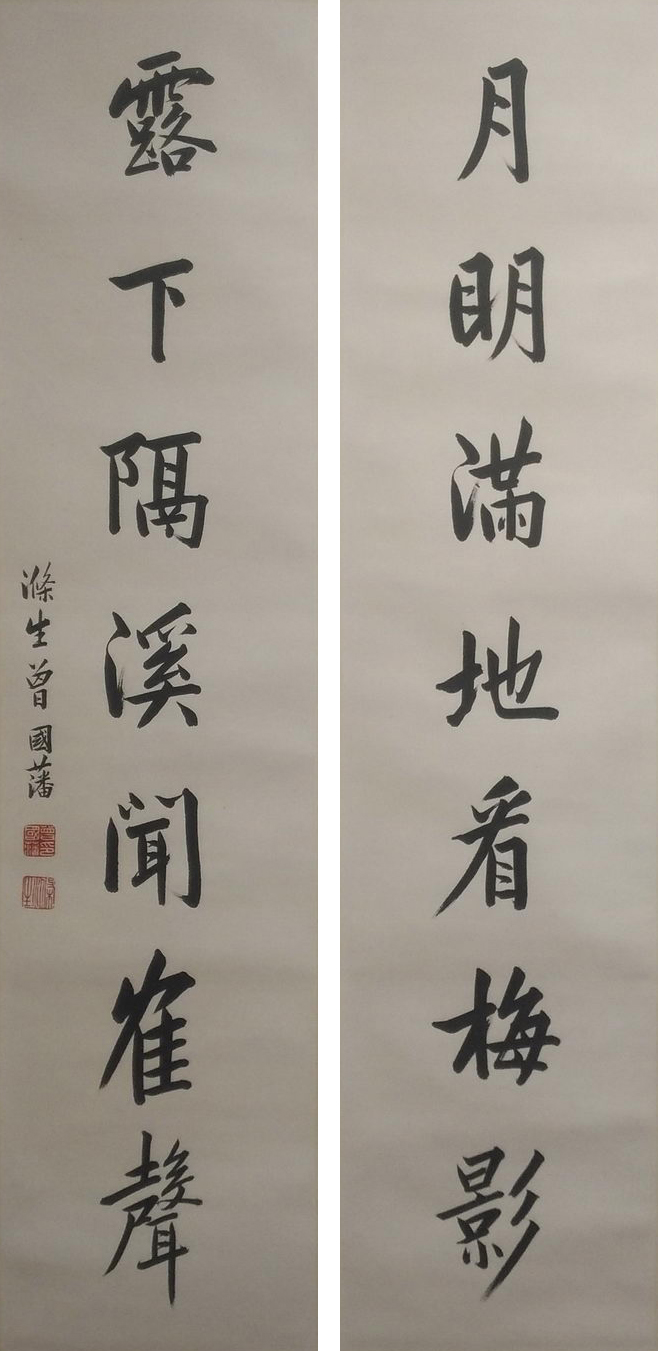 月明滿地看梅影
露下隔溪聞隺聲
滌生曾國藩